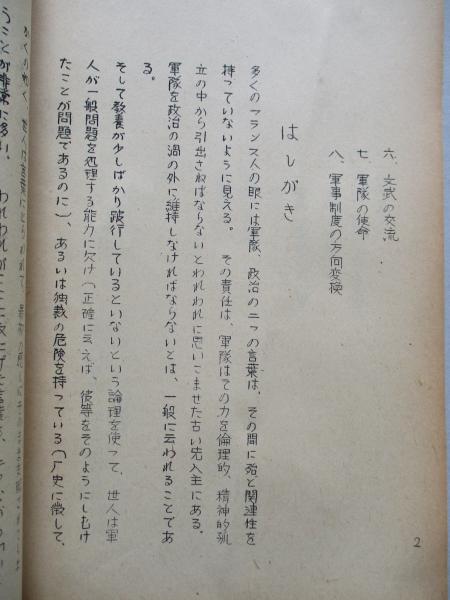 六、文武の交流
七、軍隊の使命
八、軍事制度の方向変換
はしがき
多くのフランス人の眼には軍隊、政治の二つの言葉は、その間に殆ど関連性を
持っていないように見える。その責任は、軍隊はその力を倫理的、精神的孤
立の中から引出さねばならないとわれわれに思いこませた古い先入主にある。
軍隊を政治の渦の外に維持しなければならないとは、一般に云われることであ
る。
そして教養が少しばかり跛行しているといないという論理を使って、世人は軍
人が一般問題を処理する能力に欠け(正確に云えば、彼等をそのようにしむけ
たことが問題であるのに)、あるいは独裁の危険を持っている(厂史に徴して、
2